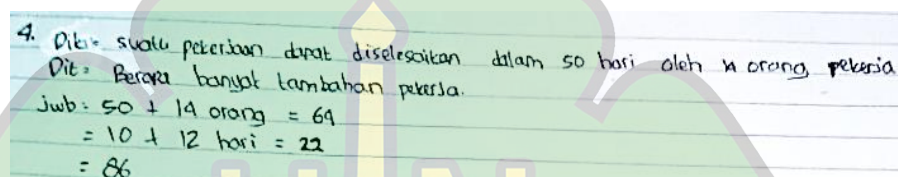 4. Dik: suatu pekerjaan dapat diselesaikan dalam 50 hari oleh 14 orang pekerja
Dit: Berapa banyak tambahan pekerja.
Jwb: 50 + 14 orang = 64
= 10 + 12 hari = 22
= 86